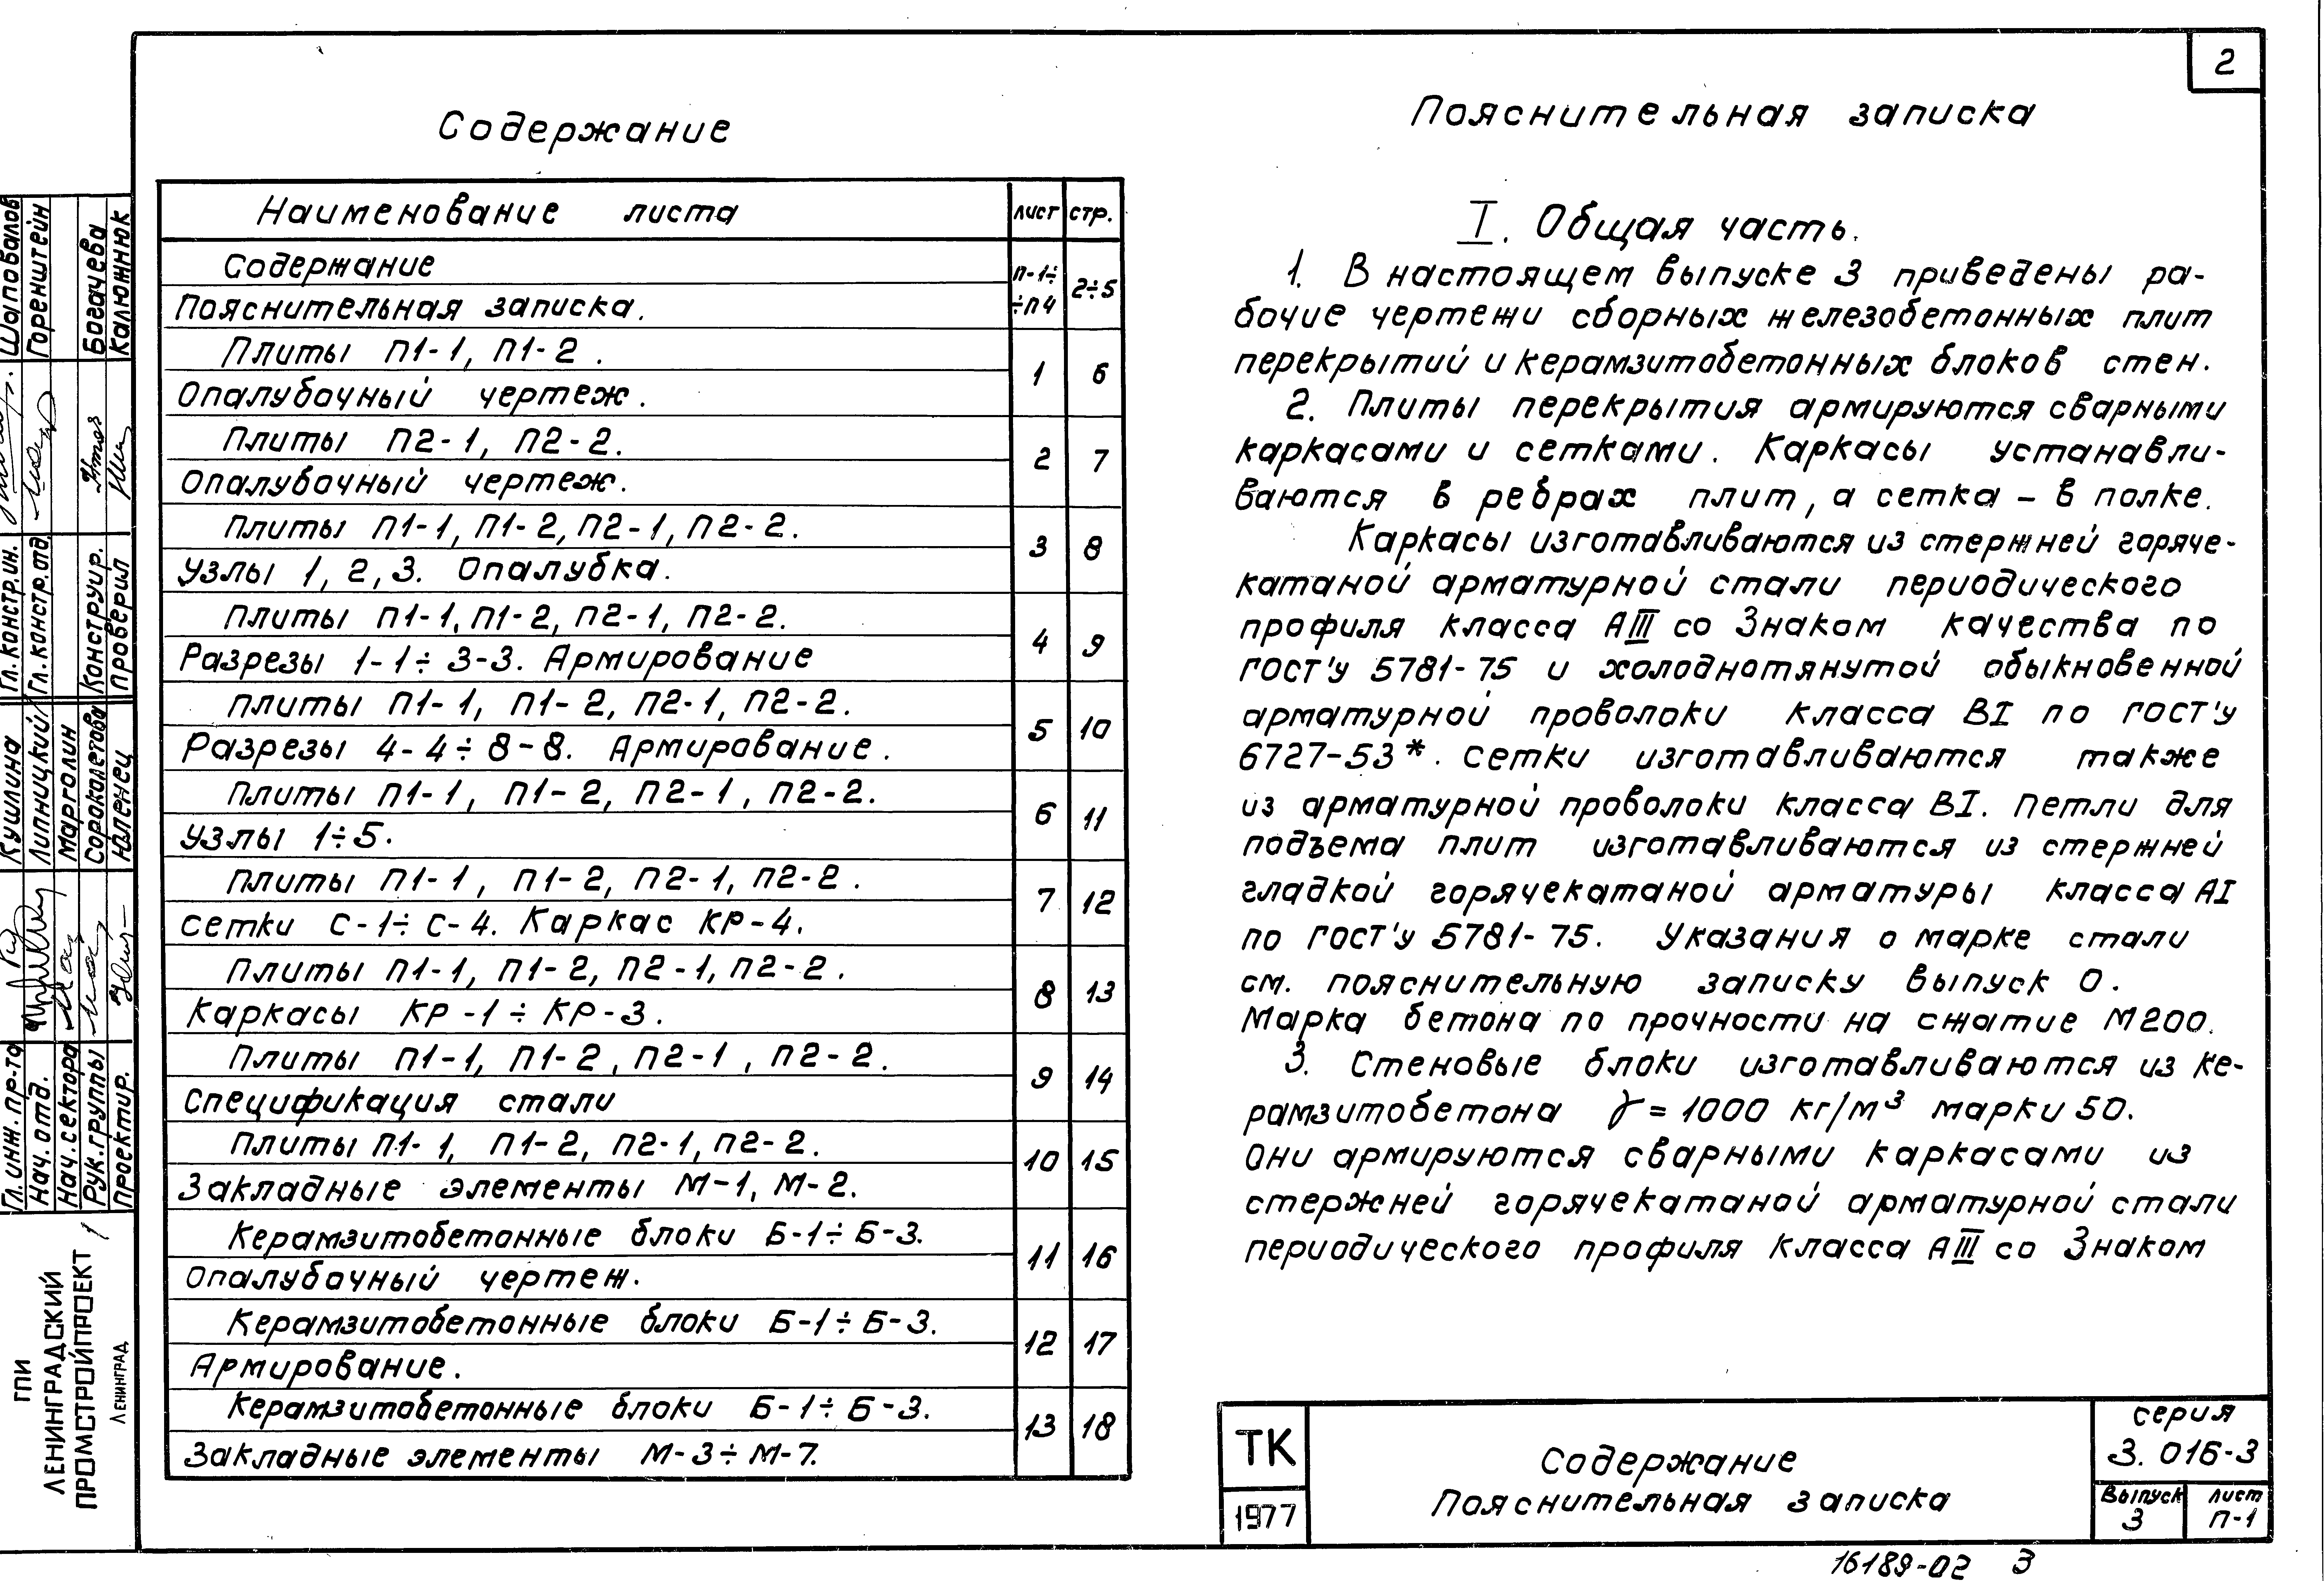 2
Содержание
Наименование листа лист стр.
Содержание
Пояснительная записка. п-1÷ ÷п4 2÷5
Плиты П1-1, П1-2.
Опалубочный чертеж. 1 6
Плиты П2-1, П2-2.
Опалубочный чертеж. 2 7
Плиты П1-1, П1-2, П2-1, П2-2.
Узлы 1, 2, 3. Опалубка. 3 8
Плиты П1-1, П1-2, П2-1, П2-2.
Разрезы 1-1÷3-3. Армирование 4 9
Плиты П1-1, П1-2, П2-1, П2-2.
Разрезы 4-4÷8-8. Армирование. 5 10
Плиты П1-1, П1-2, П2-1, П2-2.
Узлы 1÷5. 6 11
Плиты П1-1, П1-2, П2-1, П2-2.
Сетки С-1÷С-4. Каркас КР-4. 7 12
Плиты П1-1, П1-2, П2-1, П2-2.
Каркасы КР-1÷КР-3. 8 13
Плиты П1-1, П1-2, П2-1, П2-2.
Спецификация стали 9 14
Плиты П1-1, П1-2, П2-1, П2-2.
Закладные элементы М-1, М-2. 10 15
Керамзитобетонные блоки Б-1÷Б-3.
Опалубочный чертеж. 11 16
Керамзитобетонные блоки Б-1÷Б-3.
Армирование. 12 17
Керамзитобетонные блоки Б-1÷Б-3.
Закладные элементы М-3÷М-7. 13 18
Пояснительная записка
I. Общая часть.
1. В настоящем выпуске 3 приведены ра-
бочие чертежи сборных железобетонных плит
перекрытий и керамзитобетонных блоков стен.
2. Плиты перекрытия армируются сварными
каркасами и сетками. Каркасы устанавли-
ваются в ребрах плит, а сетка – в полке.
Каркасы изготавливаются из стержней горяче-
катаной арматурной стали периодического
профиля класса АIII со Знаком качества по
ГОСТ'у 5781-75 и холоднотянутой обыкновенной
арматурной проволоки класса ВI по ГОСТ'у
6727-53*. Сетки изготавливаются также
из арматурной проволоки класса ВI. Петли для
подъема плит изготавливаются из стержней
гладкой горячекатаной арматуры класса АI
по ГОСТ'у 5781-75. Указания о марке стали
см. пояснительную записку выпуск 0.
Марка бетона по прочности на сжатие М200.
3. Стеновые блоки изготавливаются из ке-
рамзитобетона γ=1000 кг/м³ марки 50.
Они армируются сварными каркасами из
стержней горячекатаной арматурной стали
периодического профиля класса АIII со Знаком
ТК
1977
Содержание
Пояснительная записка
серия
3.016-3
Выпуск
3
лист
П-1
16189-02 3
Гл. констр. ин. Шаповалов
Гл. констр. отд. Горенштейн
Конструир. Богачева
Проверил Калюжнюк
Гл. инж. пр-та Кушлина
Нач. отд. Липницкий
Нач. сектора Марголин
Рук. группы Сороколетова
Проектир. Юленец
ГПИ
ЛЕНИНГРАДСКИЙ
ПРОМСТРОЙПРОЕКТ
ЛЕНИНГРАД